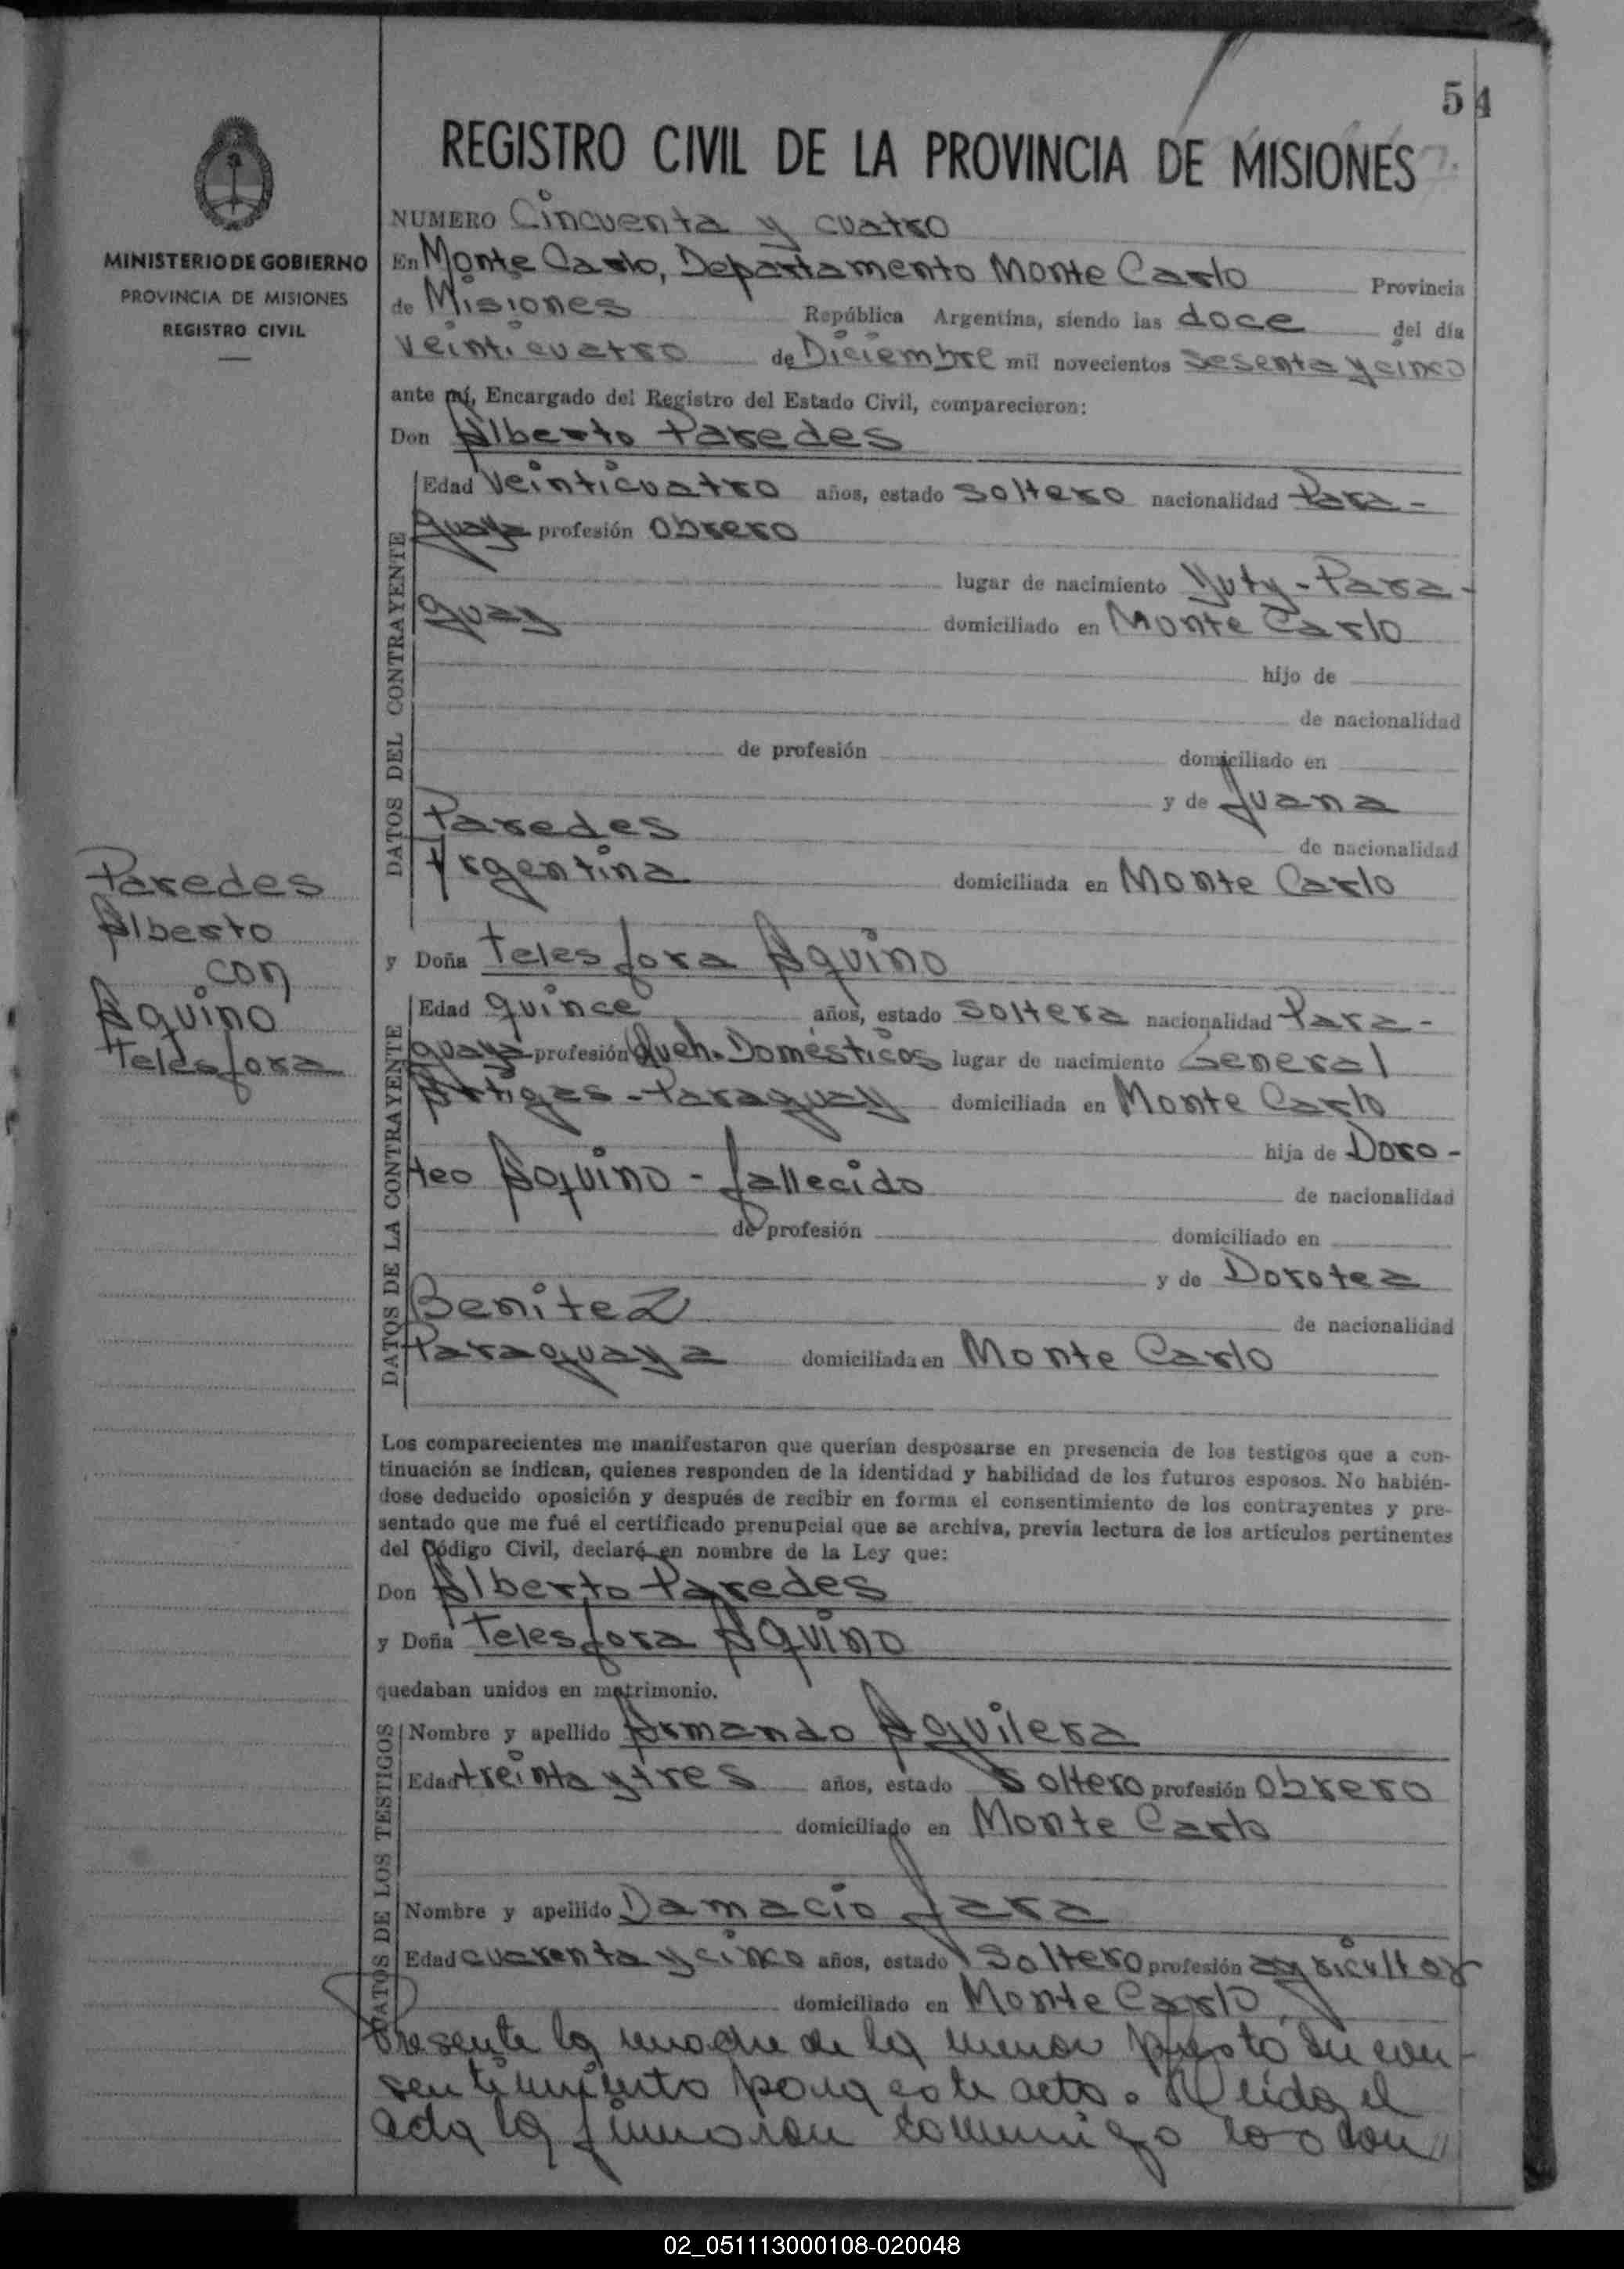 54
REGISTRO CIVIL DE LA PROVINCIA DE MISIONES
MINISTERIO DE GOBIERNO
PROVINCIA DE MISIONES
REGISTRO CIVIL
NUMERO Cincuenta y cuatro
En Monte Carlo, Departamento Monte Carlo Provincia
de Misiones República Argentina, siendo las doce del día
veinticuatro de Diciembre mil novecientos sesenta y cinco
ante mí, Encargado del Registro del Estado Civil, comparecieron:
Don Alberto Paredes
DATOS DEL CONTRAYENTE
Edad veinticuatro años, estado soltero nacionalidad Para-
guaya profesión obrero
lugar de nacimiento Yuty-Para-
guay domiciliado en Monte Carlo
hijo de
de nacionalidad
de profesión domiciliado en
y de Juana
Paredes de nacionalidad
Argentina domiciliada en Monte Carlo
Paredes
Alberto
con
Aquino
Telesfora
y Doña Telesfora Aquino
DATOS DE LA CONTRAYENTE
Edad quince años, estado soltera nacionalidad Para-
guaya profesión Queh. Domésticos lugar de nacimiento General
Artigas-Paraguay domiciliada en Monte Carlo
hija de Doro-
teo Aquino - fallecido de nacionalidad
de profesión domiciliado en
y de Dorotea
Benitez de nacionalidad
Paraguaya domiciliada en Monte Carlo
Los comparecientes me manifestaron que querían desposarse en presencia de los testigos que a con-
tinuación se indican, quienes responden de la identidad y habilidad de los futuros esposos. No habién-
dose deducido oposición y después de recibir en forma el consentimiento de los contrayentes y pre-
sentado que me fué el certificado prenupcial que se archiva, previa lectura de los artículos pertinentes
del Código Civil, declaré en nombre de la Ley que:
Don Alberto Paredes
y Doña Telesfora Aquino
quedaban unidos en matrimonio.
DATOS DE LOS TESTIGOS
Nombre y apellido Armando Aguilera
Edad treinta y tres años, estado soltero profesión obrero
domiciliado en Monte Carlo
Nombre y apellido Damacio Jara
Edad cuarenta y cinco años, estado soltero profesión agricultor
domiciliado en Monte Carlo
Presente la madre de la menor presto su con-
sentimiento para este acto. Leida el
acta la firmaron conmigo los con//
02_051113000108-020048